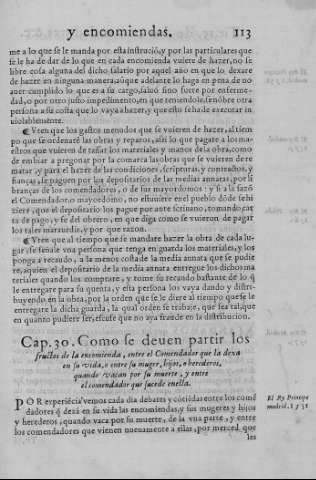 y encomiendas. 113
me a lo que se le manda por esta instrució, y por las particulares que
se le ha de dar de lo que en cada encomienda vuiere de hazer, no se
libre cosa alguna del dicho salario por aquel año en que lo dexare
de hazer en ninguna manera: aūque adelante lo haga en pena de no
auer cumplido lo que es a su cargo, saluo sino fuere por enferme-
dad, o por otro justo impedimiento, en que
persona a su costa que lo vaya a hazer, y que esto se ha de executar in
uiolablemente.
¶ Yten que los gastos menudos que se vuieren de hazer, al tiem
po que se ordenaré las obras y reparos, assi lo que pagare a los ma-
estros que vuieren de tassar los materiales y manos de la obra, como
de embiar a pregonar por la comarca las obras que se vuieren de re
matar, y para el hazer de las condiciones, scripturas, y contractos, y
fianças, se paguen por los depositarios de las medias annatas, por li
branças de los comendadores, o de sus mayordomos: y si a la sazō
el Comendador, o mayordomo, no estuuiere enel pueblo dōde se hi
ziere, que el depositario los pague por ante scriuano, tomando car
ta de pago, y fe del obrero, en que diga como se vuieron de pagar
los tales marauedis, y por que razon.
¶ Yten que al tiempo que se mandare hazer la obra de cada lu-
gar, se señale vna persona que tenga en guarda los materiales, y los
ponga a recaudo, a la menos costa de la media annata que se pudie
re, aquien el depositario de la media annata entregue los dichos ma
teriales quando los comprare, y tome su recaudo bastante de lo q̄
le entregare para su quenta, y esta persona los vaya dando y distri-
buyendo en la obra, por la orden q̄ se le diere al tiempo que se le
entregare la dicha guarda, la qual orden se trabaje, que sea tal, que
en quanto pudiere ser, escuse que no aya fraude en la distribucion.
Cap. 30. Como se deuen partir los
fructos de la encomienda, entre el Comendador que la dexa
en su vida, o entre su muger, hijos, o herederos,
quando vacan por su muerte, y entre
el comendador que sucede enella.
POR experiécia vemos cada dia debates y cōtiēdas entre los comē
dadores q̄ dexā en su vida las encomiendas, y sus mugeres y hijos
y herederos, quando vaca por su muerte, de la vna parte, y entre
los comendadores que vienen nueuamente a ellas, por merced que
les
El Rey Principe
madrid. 1551